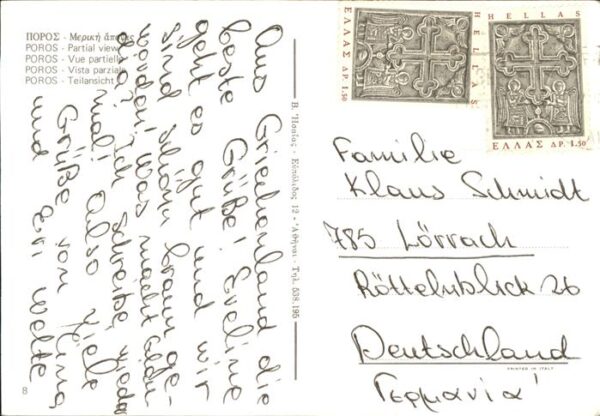 ΠΟΡΟΣ - Μερική ἄποψις
POROS - Partial view
POROS - Vue partielle
POROS - Vista parziale
POROS - Teilansicht
Aus Griechenland die
beste Grüße! Eveline
geht es gut und wir
sind schön braun ge-
worden! Was macht
also? Ich schreibe wieder
mal! Also viele
Grüße von Nina
und Eri Welte
8
Β. Ἡσαΐας - Εὐπόλιδος 12 - Ἀθῆναι - Τηλ. 538.195
HELLAS
ΕΛΛΑΣ ΔΡ. 1.50
HELLAS
ΕΛΛΑΣ ΔΡ. 1.50
Familie
Klaus Schmidt
785 Lörrach
Röttelnblick 26
Deutschland
PRINTED IN ITALY
Γερμανία